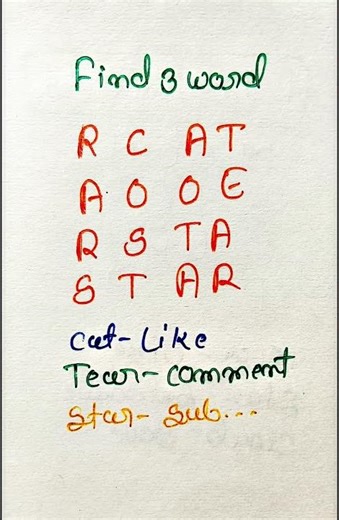 Find 3 word
R C A T
A O O E
R S T A
S T A R
Cat - Like
Tear - comment
Star - Sub...